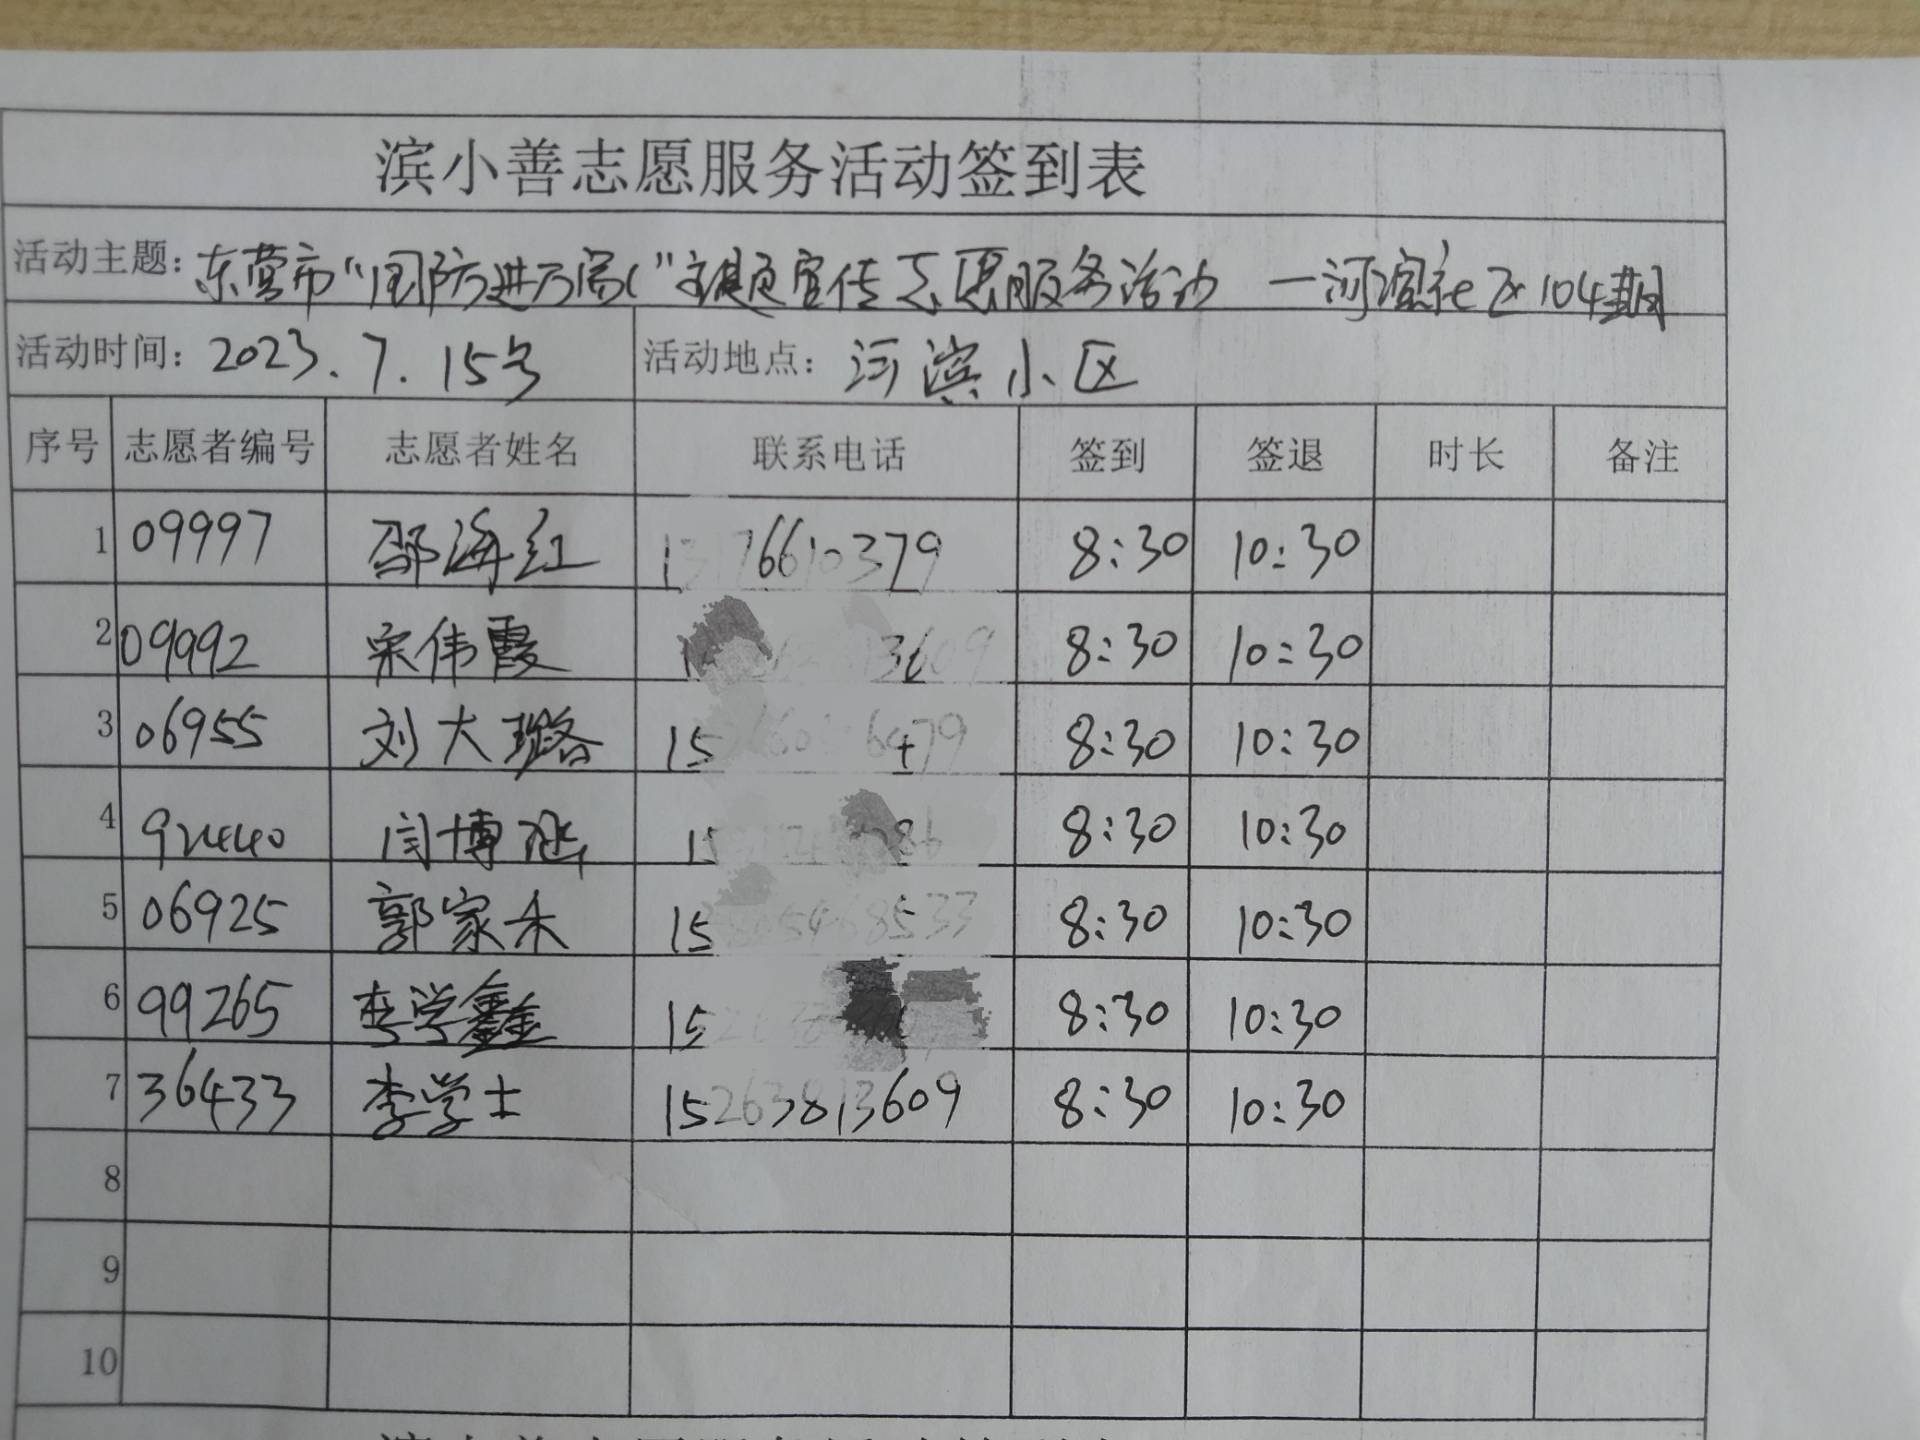 滨小善志愿服务活动签到表
活动主题：东营市“国防进万家”主题宣传志愿服务活动 一河滨社区104期
活动时间：2023.7.15号 活动地点：河滨小区
序号 志愿者编号 志愿者姓名 联系电话 签到 签退 时长 备注
1 09997 邵海红 8:30 10:30
2 09992 宋伟霞 8:30 10:30
3 06955 刘大璐 15 8:30 10:30
4 92440 闫博涵 15 8:30 10:30
5 06925 郭家禾 15 8:30 10:30
6 99265 李学鑫 15 8:30 10:30
7 36433 李学士 8:30 10:30
8
9
10